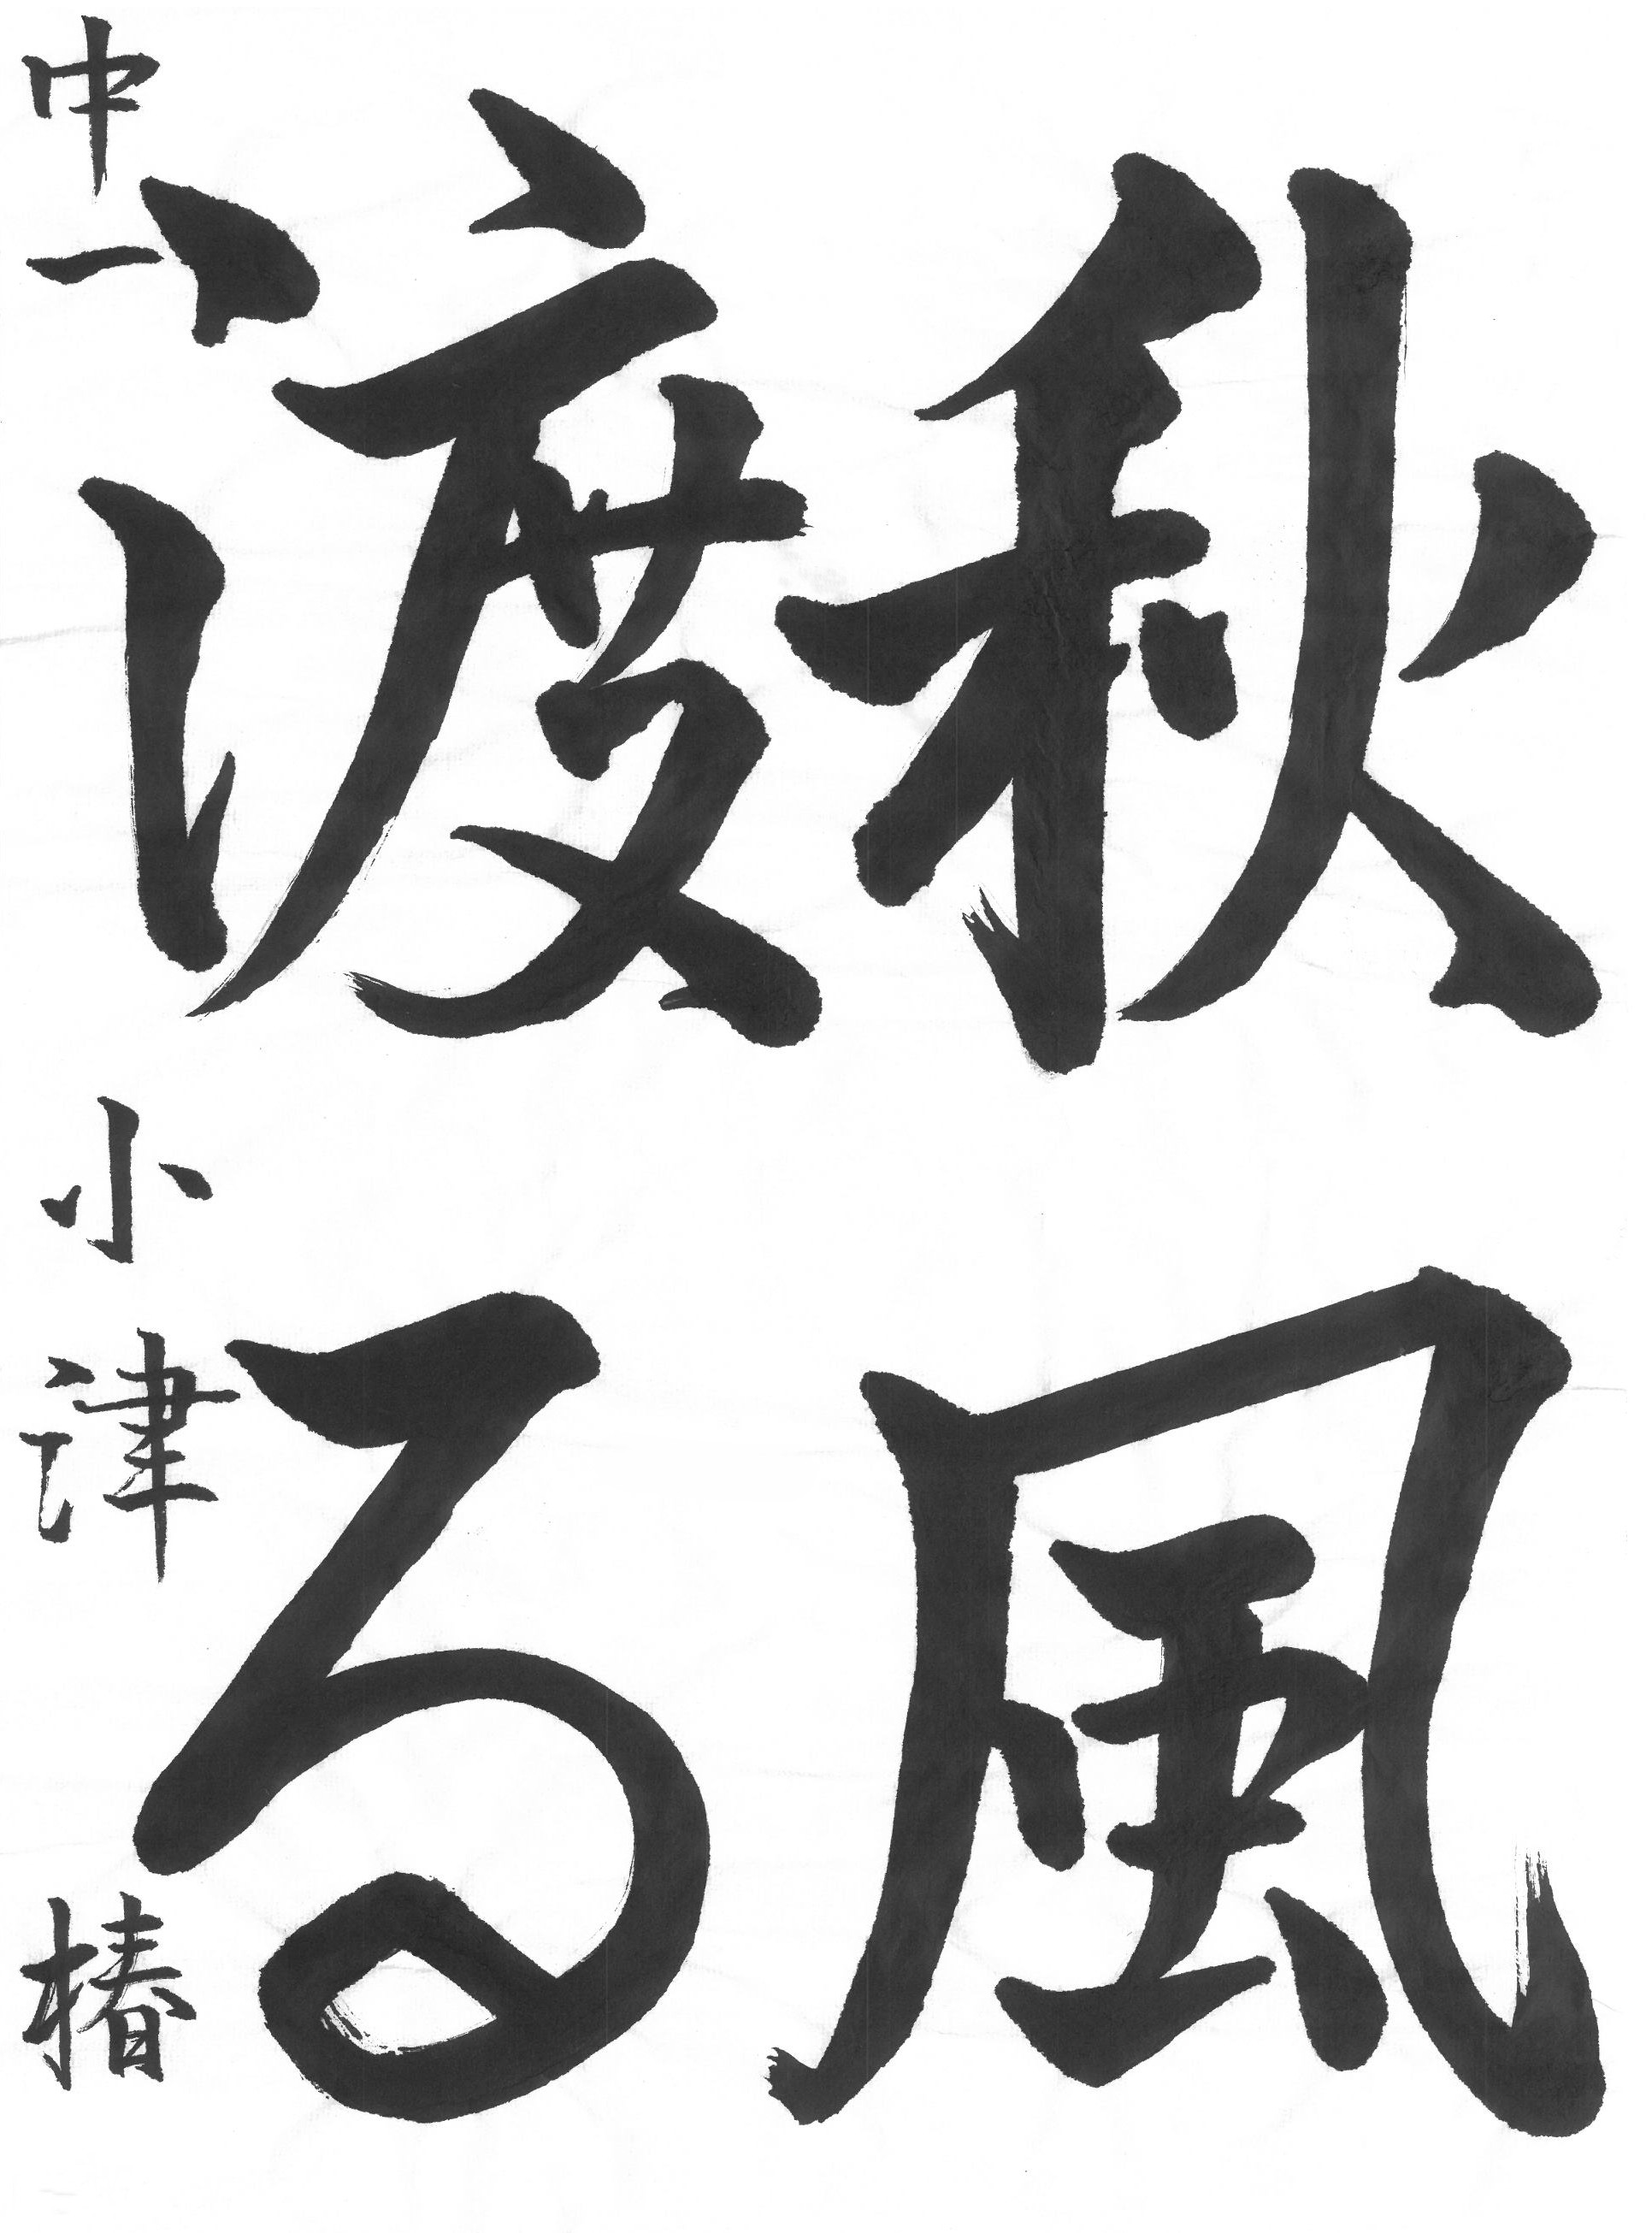 秋風
渡る
中一 小津 椿